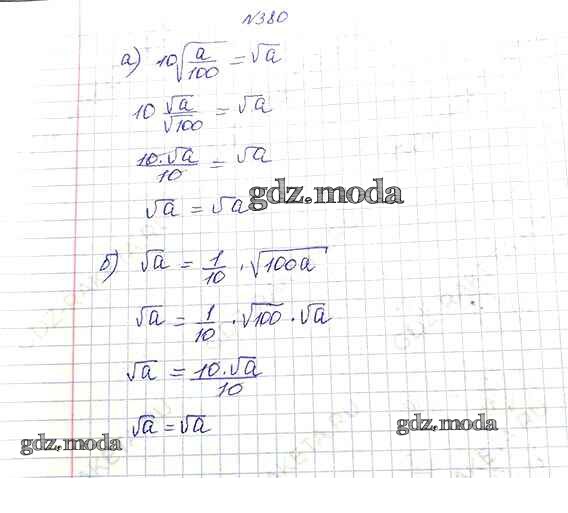 №380
а) 10√(a/100) = √a
10 √a/√100 = √a
10·√a/10 = √a
√a = √a
gdz.moda
б) √a = 1/10 · √100a
√a = 1/10 · √100 · √a
√a = 10·√a/10
√a = √a
gdz.moda
gdz.moda